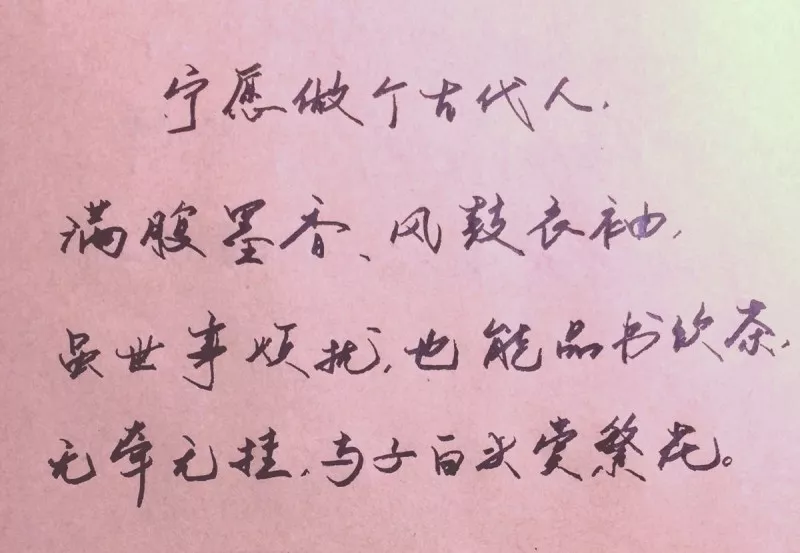 宁愿做个古代人,
满腹墨香、风鼓衣袖,
虽世事烦扰,也能品书饮茶,
无牵无挂,与子白头赏繁花。